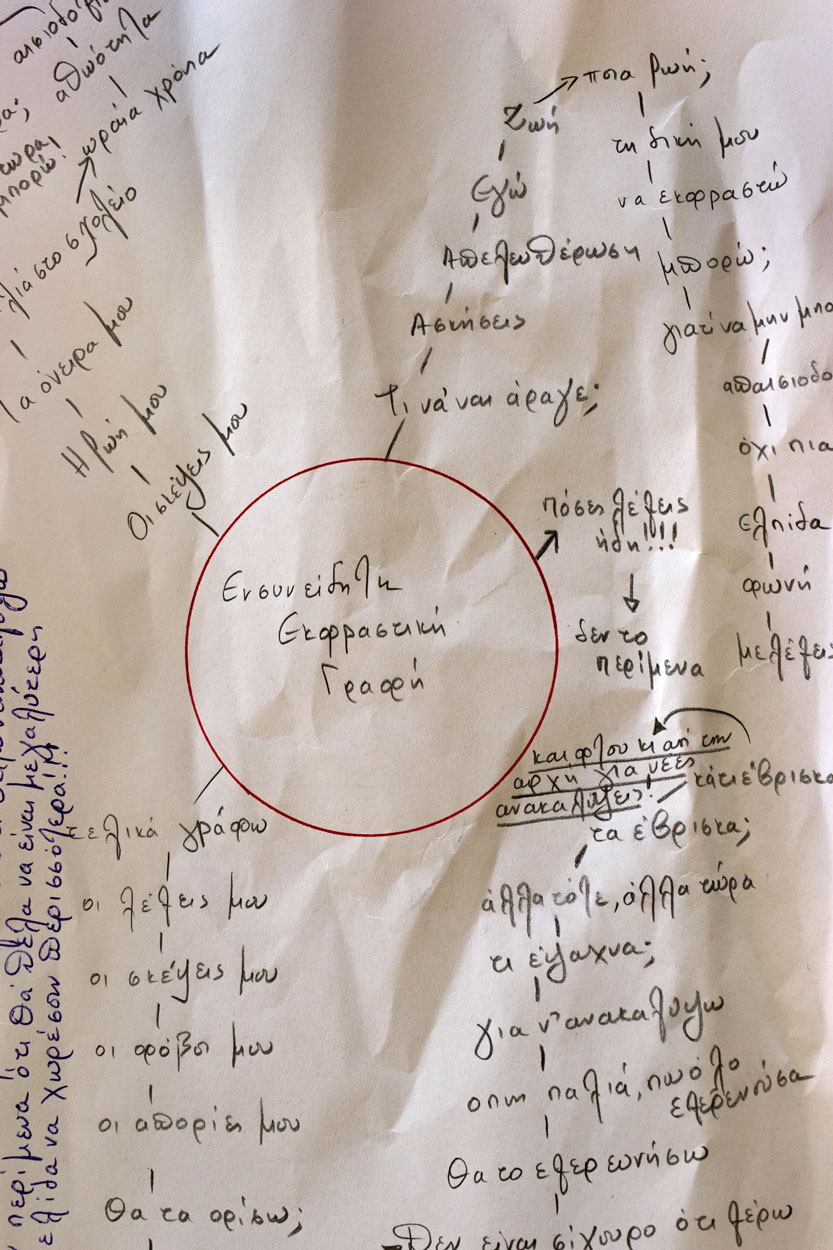 αθωότητα
ωραία χρόνια
μπορώ!
σχολείο
Τα όνειρα μου
Η ζωή μου
Οι σκέψεις μου
ποια ζωή;
Ζωή
τη δική μου
Εγώ
να εκφραστώ
Απελευθέρωση
μπορώ;
Ασκήσεις
γιατί να μην
Τι νά'ναι άραγε;
όχι πια
ελπίδα
φωνή
με λέξεις
πόσες λέξεις
ήδη!!!
δεν το
περίμενα
Ενσυνείδητη
Εκφραστική
Γραφή
και φτου κι από την
αρχή για νέες
ανακαλύψεις!
κάτι έβρισκα
τα έβρισκα;
άλλα τότε, άλλα τώρα
τι έψαχνα;
για ν' ανακαλύψω
όπως παλιά, που όλο
εξερευνούσα
Θα το εξερευνήσω
Δεν είναι σίγουρο ότι ξέρω
τελικά γράφω
οι λέξεις μου
οι σκέψεις μου
οι φόβοι μου
οι απορίες μου
Θα τα ορίσω;
περίμενα ότι θα 'θελα να είναι μεγαλύτερη
σελίδα να χωρέσουν περισσότερα!!!